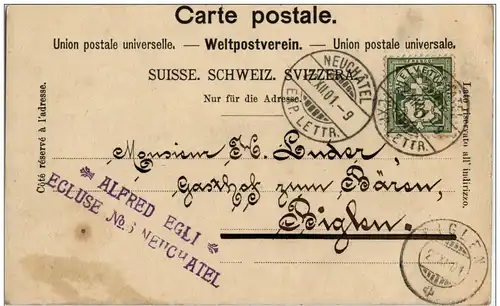 Carte postale.
Union postale universelle. — Weltpostverein. — Union postale universale.
SUISSE. SCHWEIZ. SVIZZERA.
Nur für die Adresse.
Côté réservé à l'adresse.
Lato riservato all' indirizzo.
NEUCHÂTEL
XII 01.-9
EXP. LETTR.
HELVETIA
5
LETTR.
Monsieur H. Luder,
Gasthof zum Bären,
Biglen.
* ALFRED EGLI *
ECLUSE No. NEUCHATEL
BIGLEN